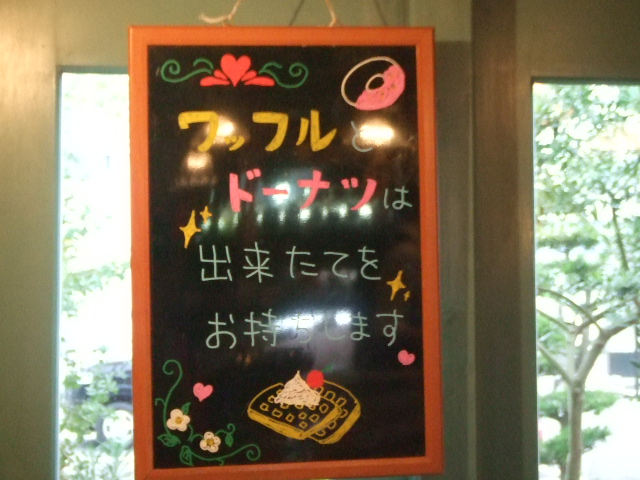 ワッフルと
ドーナツは
出来たてを
お持ちします